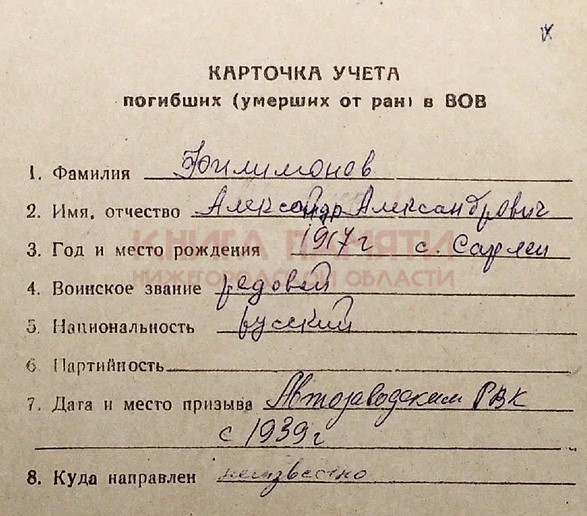 КАРТОЧКА УЧЕТА
погибших (умерших от ран) в ВОВ
1. Фамилия Филимонов
2. Имя, отчество Александр Александрович
3. Год и место рождения 1917 г с. Сарлеи
КНИГА ПАМЯТИ
НИЖЕГОРОДСКОЙ ОБЛАСТИ
4. Воинское звание редовей
5. Национальность русский
6. Партийность
7. Дата и место призыва Автозаводским РВК
с 1939 г
8. Куда направлен неизвестно